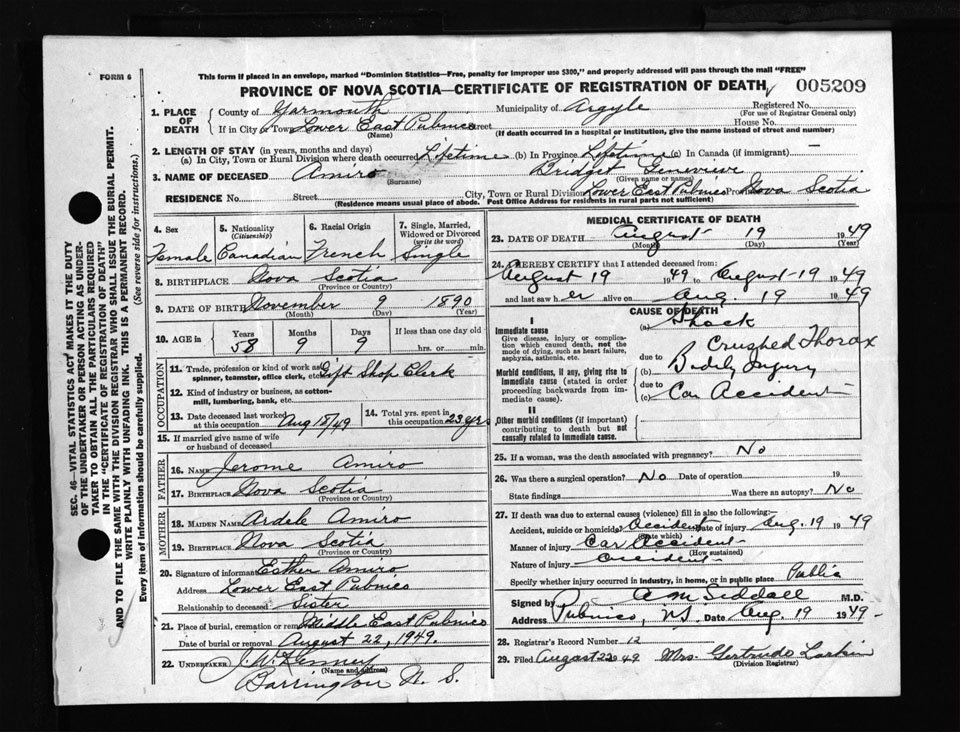 FORM 6
This form if placed in an envelope, marked "Dominion Statistics—Free, penalty for improper use $300," and properly addressed will pass through the mail "FREE"
PROVINCE OF NOVA SCOTIA—CERTIFICATE OF REGISTRATION OF DEATH
005209
1. PLACE OF DEATH
County of Yarmouth Municipality of Argyle Registered No.
(For use of Registrar General only)
If in City or Town Lower East Pubnico Street House No.
(Name) (If death occurred in a hospital or institution, give the name instead of street and number)
2. LENGTH OF STAY (in years, months and days)
(a) In City, Town or Rural Division where death occurred Lifetime (b) In Province Lifetime (c) In Canada (if immigrant) —
3. NAME OF DECEASED Amiro Bridget Genevieve
(Surname) (Given name or names)
RESIDENCE No. Street City, Town or Rural Division Lower East Pubnico Province Nova Scotia
(Residence means usual place of abode. Post Office Address for residents in rural parts not sufficient)
SEC. 46—VITAL STATISTICS ACT MAKES IT THE DUTY
OF THE UNDERTAKER OR PERSON ACTING AS UNDER-
TAKER TO OBTAIN ALL THE PARTICULARS REQUIRED
IN THE "CERTIFICATE OF REGISTRATION OF DEATH"
AND TO FILE THE SAME WITH THE DIVISION REGISTRAR WHO SHALL ISSUE THE BURIAL PERMIT.
WRITE PLAINLY WITH UNFADING INK. THIS IS A PERMANENT RECORD.
Every item of information should be carefully supplied. (See reverse side for instructions.)
4. Sex
Female
5. Nationality
(Citizenship)
Canadian
6. Racial Origin
French
7. Single, Married,
Widowed or Divorced
(write the word)
Single
8. BIRTHPLACE Nova Scotia
(Province or Country)
9. DATE OF BIRTH November 9 1890
(Month) (Day) (Year)
10. AGE in
Years Months Days If less than one day old
58 9 9 hrs. or min.
OCCUPATION
11. Trade, profession or kind of work as
spinner, teamster, office clerk, etc. Gift Shop Clerk
12. Kind of industry or business, as cotton-
mill, lumbering, bank, etc.
13. Date deceased last worked
at this occupation Aug 18/49
14. Total yrs. spent in
this occupation 23 yrs
15. If married give name of wife
or husband of deceased
FATHER
16. NAME Jerome Amiro
17. BIRTHPLACE Nova Scotia
(Province or Country)
MOTHER
18. MAIDEN NAME Ardele Amiro
19. BIRTHPLACE Nova Scotia
(Province or Country)
20. Signature of informant Esther Amiro
Address Lower East Pubnico
Relationship to deceased Sister
21. Place of burial, cremation or removal Middle East Pubnico
Date of burial or removal August 22, 1949.
22. UNDERTAKER J. W. Kenney
(Name and address)
Barrington N. S.
MEDICAL CERTIFICATE OF DEATH
23. DATE OF DEATH August 19 1949
(Month) (Day) (Year)
24. I HEREBY CERTIFY that I attended deceased from:
August 19 1949 to August 19 1949
and last saw her alive on Aug. 19 1949
CAUSE OF DEATH
I
Immediate cause
Give disease, injury or complica-
tion which caused death, not the
mode of dying, such as heart failure,
asphyxia, asthenia, etc.
(a) Shock
Crushed Thorax
due to
Morbid conditions, if any, giving rise to
immediate cause (stated in order
proceeding backwards from im-
mediate cause).
(b) Bodily Injury
due to
(c) Car Accident
II
Other morbid conditions (if important)
contributing to death but not
causally related to immediate cause.
25. If a woman, was the death associated with pregnancy? No
26. Was there a surgical operation? No Date of operation 19
State findings Was there an autopsy? No
27. If death was due to external causes (violence) fill in also the following:
Accident, suicide or homicide? Accident Date of injury Aug. 19 1949
(State which)
Manner of injury Car Accident
(How sustained)
Nature of injury accident
Specify whether injury occurred in industry, in home, or in public place Public
Signed by A M Siddall M.D.
Address Pubnico, N.S. Date Aug. 19 1949
28. Registrar's Record Number 12
29. Filed August 22 1949 Mrs. Gertrude Larkin
(Division Registrar)